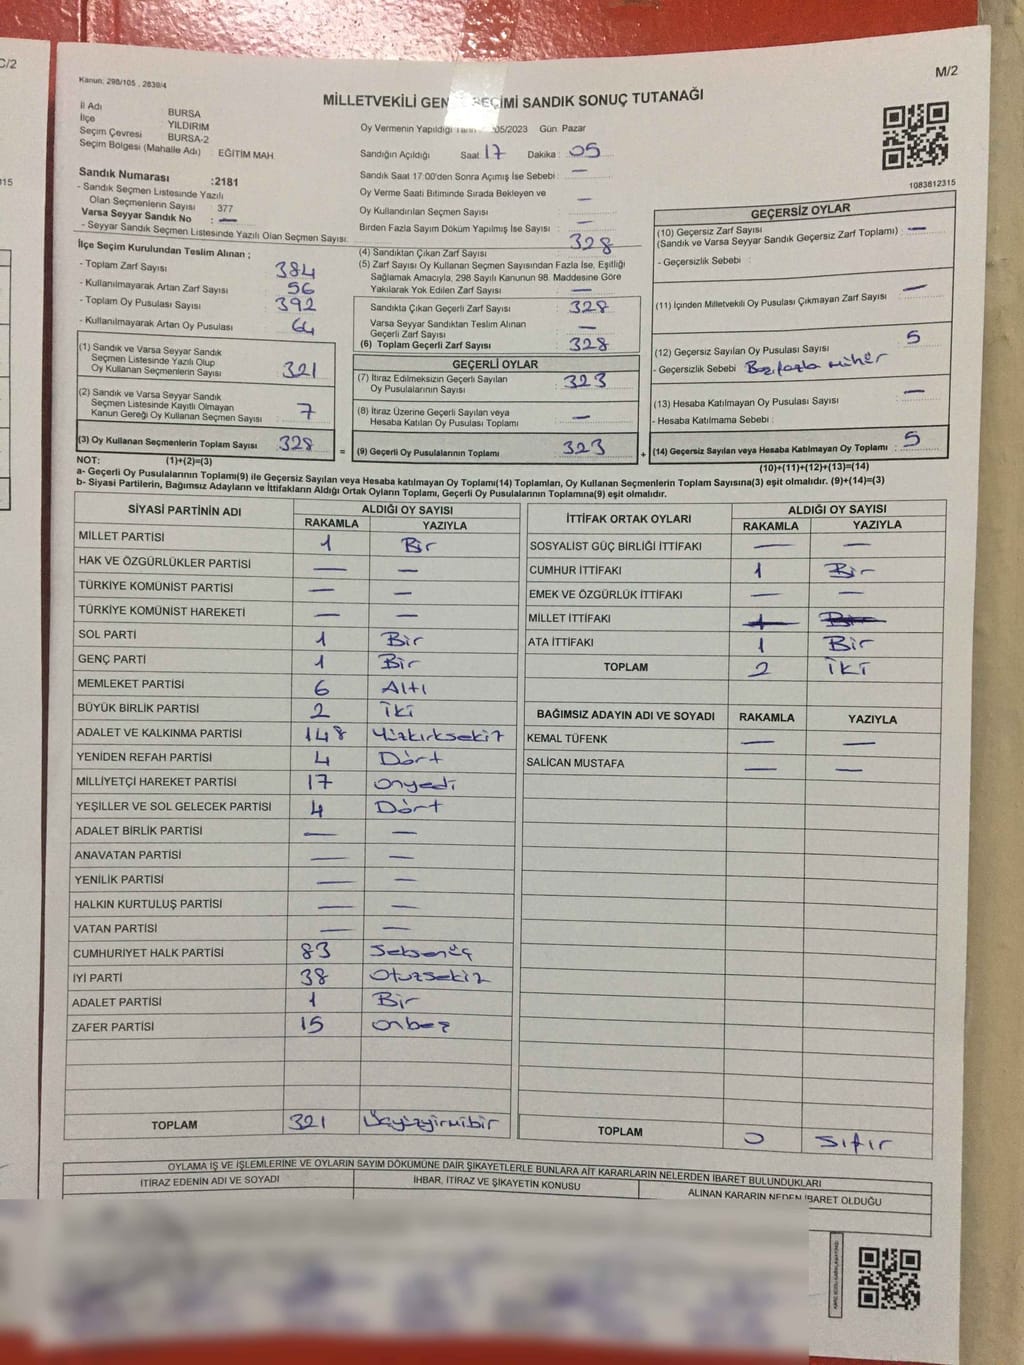 C/2
315
M/2
Kanun: 298/105 , 2839/4
MİLLETVEKİLİ GEN SEÇİMİ SANDIK SONUÇ TUTANAĞI
İl Adı BURSA
İlçe YILDIRIM
Seçim Çevresi BURSA-2
Seçim Bölgesi (Mahalle Adı) : EĞİTİM MAH
Oy Vermenin Yapıldığı /05/2023 Gün Pazar
Sandığın Açıldığı Saat 17 Dakika : 05
Sandık Saat 17:00'den Sonra Açımış İse Sebebi : —
Oy Verme Saati Bitiminde Sırada Bekleyen ve
Oy Kullandırılan Seçmen Sayısı —
Birden Fazla Sayım Döküm Yapılmış İse Sayısı : —
1083812315
Sandık Numarası :2181
- Sandık Seçmen Listesinde Yazılı
Olan Seçmenlerin Sayısı : 377
Varsa Seyyar Sandık No : —
- Seyyar Sandık Seçmen Listesinde Yazılı Olan Seçmen Sayısı:
İlçe Seçim Kurulundan Teslim Alınan ;
- Toplam Zarf Sayısı 384
- Kullanılmayarak Artan Zarf Sayısı : 56
- Toplam Oy Pusulası Sayısı : 392
- Kullanılmayarak Artan Oy Pusulası 64
(1) Sandık ve Varsa Seyyar Sandık
Seçmen Listesinde Yazılı Olup
Oy Kullanan Seçmenlerin Sayısı : 321
(2) Sandık ve Varsa Seyyar Sandık
Seçmen Listesinde Kayıtlı Olmayan
Kanun Gereği Oy Kullanan Seçmen Sayısı : 7
(3) Oy Kullanan Seçmenlerin Toplam Sayısı : 328
(4) Sandıktan Çıkan Zarf Sayısı : 328
(5) Zarf Sayısı Oy Kullanan Seçmen Sayısından Fazla İse, Eşitliği
Sağlamak Amacıyla, 298 Sayılı Kanunun 98. Maddesine Göre
Yakılarak Yok Edilen Zarf Sayısı : —
Sandıkta Çıkan Geçerli Zarf Sayısı : 328
Varsa Seyyar Sandıktan Teslim Alınan
Geçerli Zarf Sayısı : —
(6) Toplam Geçerli Zarf Sayısı : 328
GEÇERLİ OYLAR
(7) İtiraz Edilmeksizin Geçerli Sayılan
Oy Pusulalarının Sayısı : 323
(8) İtiraz Üzerine Geçerli Sayılan veya
Hesaba Katılan Oy Pusulası Toplamı : —
= (9) Geçerli Oy Pusulalarının Toplamı : 323 +
GEÇERSİZ OYLAR
(10) Geçersiz Zarf Sayısı
(Sandık ve Varsa Seyyar Sandık Geçersiz Zarf Toplamı) : —
- Geçersizlik Sebebi :
(11) İçinden Milletvekili Oy Pusulası Çıkmayan Zarf Sayısı : —
(12) Geçersiz Sayılan Oy Pusulası Sayısı : 5
- Geçersizlik Sebebi :
(13) Hesaba Katılmayan Oy Pusulası Sayısı : —
- Hesaba Katılmama Sebebi :
(14) Geçersiz Sayılan veya Hesaba Katılmayan Oy Toplamı : 5
NOT: (1)+(2)=(3)
(10)+(11)+(12)+(13)=(14)
a- Geçerli Oy Pusulalarının Toplamı(9) ile Geçersiz Sayılan veya Hesaba katılmayan Oy Toplamı(14) Toplamları, Oy Kullanan Seçmenlerin Toplam Sayısına(3) eşit olmalıdır. (9)+(14)=(3)
b- Siyasi Partilerin, Bağımsız Adayların ve İttifakların Aldığı Ortak Oyların Toplamı, Geçerli Oy Pusulalarının Toplamına(9) eşit olmalıdır.
SİYASİ PARTİNİN ADI ALDIĞI OY SAYISI
RAKAMLA YAZIYLA
MİLLET PARTİSİ 1 Bir
HAK VE ÖZGÜRLÜKLER PARTİSİ — —
TÜRKİYE KOMÜNİST PARTİSİ — —
TÜRKİYE KOMÜNİST HAREKETİ — —
SOL PARTİ 1 Bir
GENÇ PARTİ 1 Bir
MEMLEKET PARTİSİ 6 Altı
BÜYÜK BİRLİK PARTİSİ 2 İki
ADALET VE KALKINMA PARTİSİ 148 Yüzkırksekiz
YENİDEN REFAH PARTİSİ 4 Dört
MİLLİYETÇİ HAREKET PARTİSİ 17 Onyedi
YEŞİLLER VE SOL GELECEK PARTİSİ 4 Dört
ADALET BİRLİK PARTİSİ — —
ANAVATAN PARTİSİ — —
YENİLİK PARTİSİ — —
HALKIN KURTULUŞ PARTİSİ — —
VATAN PARTİSİ — —
CUMHURİYET HALK PARTİSİ 83 Seksenüç
İYİ PARTİ 38 Otuzsekiz
ADALET PARTİSİ 1 Bir
ZAFER PARTİSİ 15 Onbeş
TOPLAM 321 Üçyüzyirmibir
İTTİFAK ORTAK OYLARI ALDIĞI OY SAYISI
RAKAMLA YAZIYLA
SOSYALİST GÜÇ BİRLİĞİ İTTİFAKI — —
CUMHUR İTTİFAKI 1 Bir
EMEK VE ÖZGÜRLÜK İTTİFAKI — —
MİLLET İTTİFAKI 1 Bir
ATA İTTİFAKI 1 Bir
TOPLAM 2 İki
BAĞIMSIZ ADAYIN ADI VE SOYADI RAKAMLA YAZIYLA
KEMAL TÜFENK — —
SALİCAN MUSTAFA — —
TOPLAM 0 Sıfır
OYLAMA İŞ VE İŞLEMLERİNE VE OYLARIN SAYIM DÖKÜMÜNE DAİR ŞİKAYETLERLE BUNLARA AİT KARARLARIN NELERDEN İBARET BULUNDUKLARI
İTİRAZ EDENİN ADI VE SOYADI İHBAR, İTİRAZ VE ŞİKAYETİN KONUSU ALINAN KARARIN NEDEN İBARET OLDUĞU